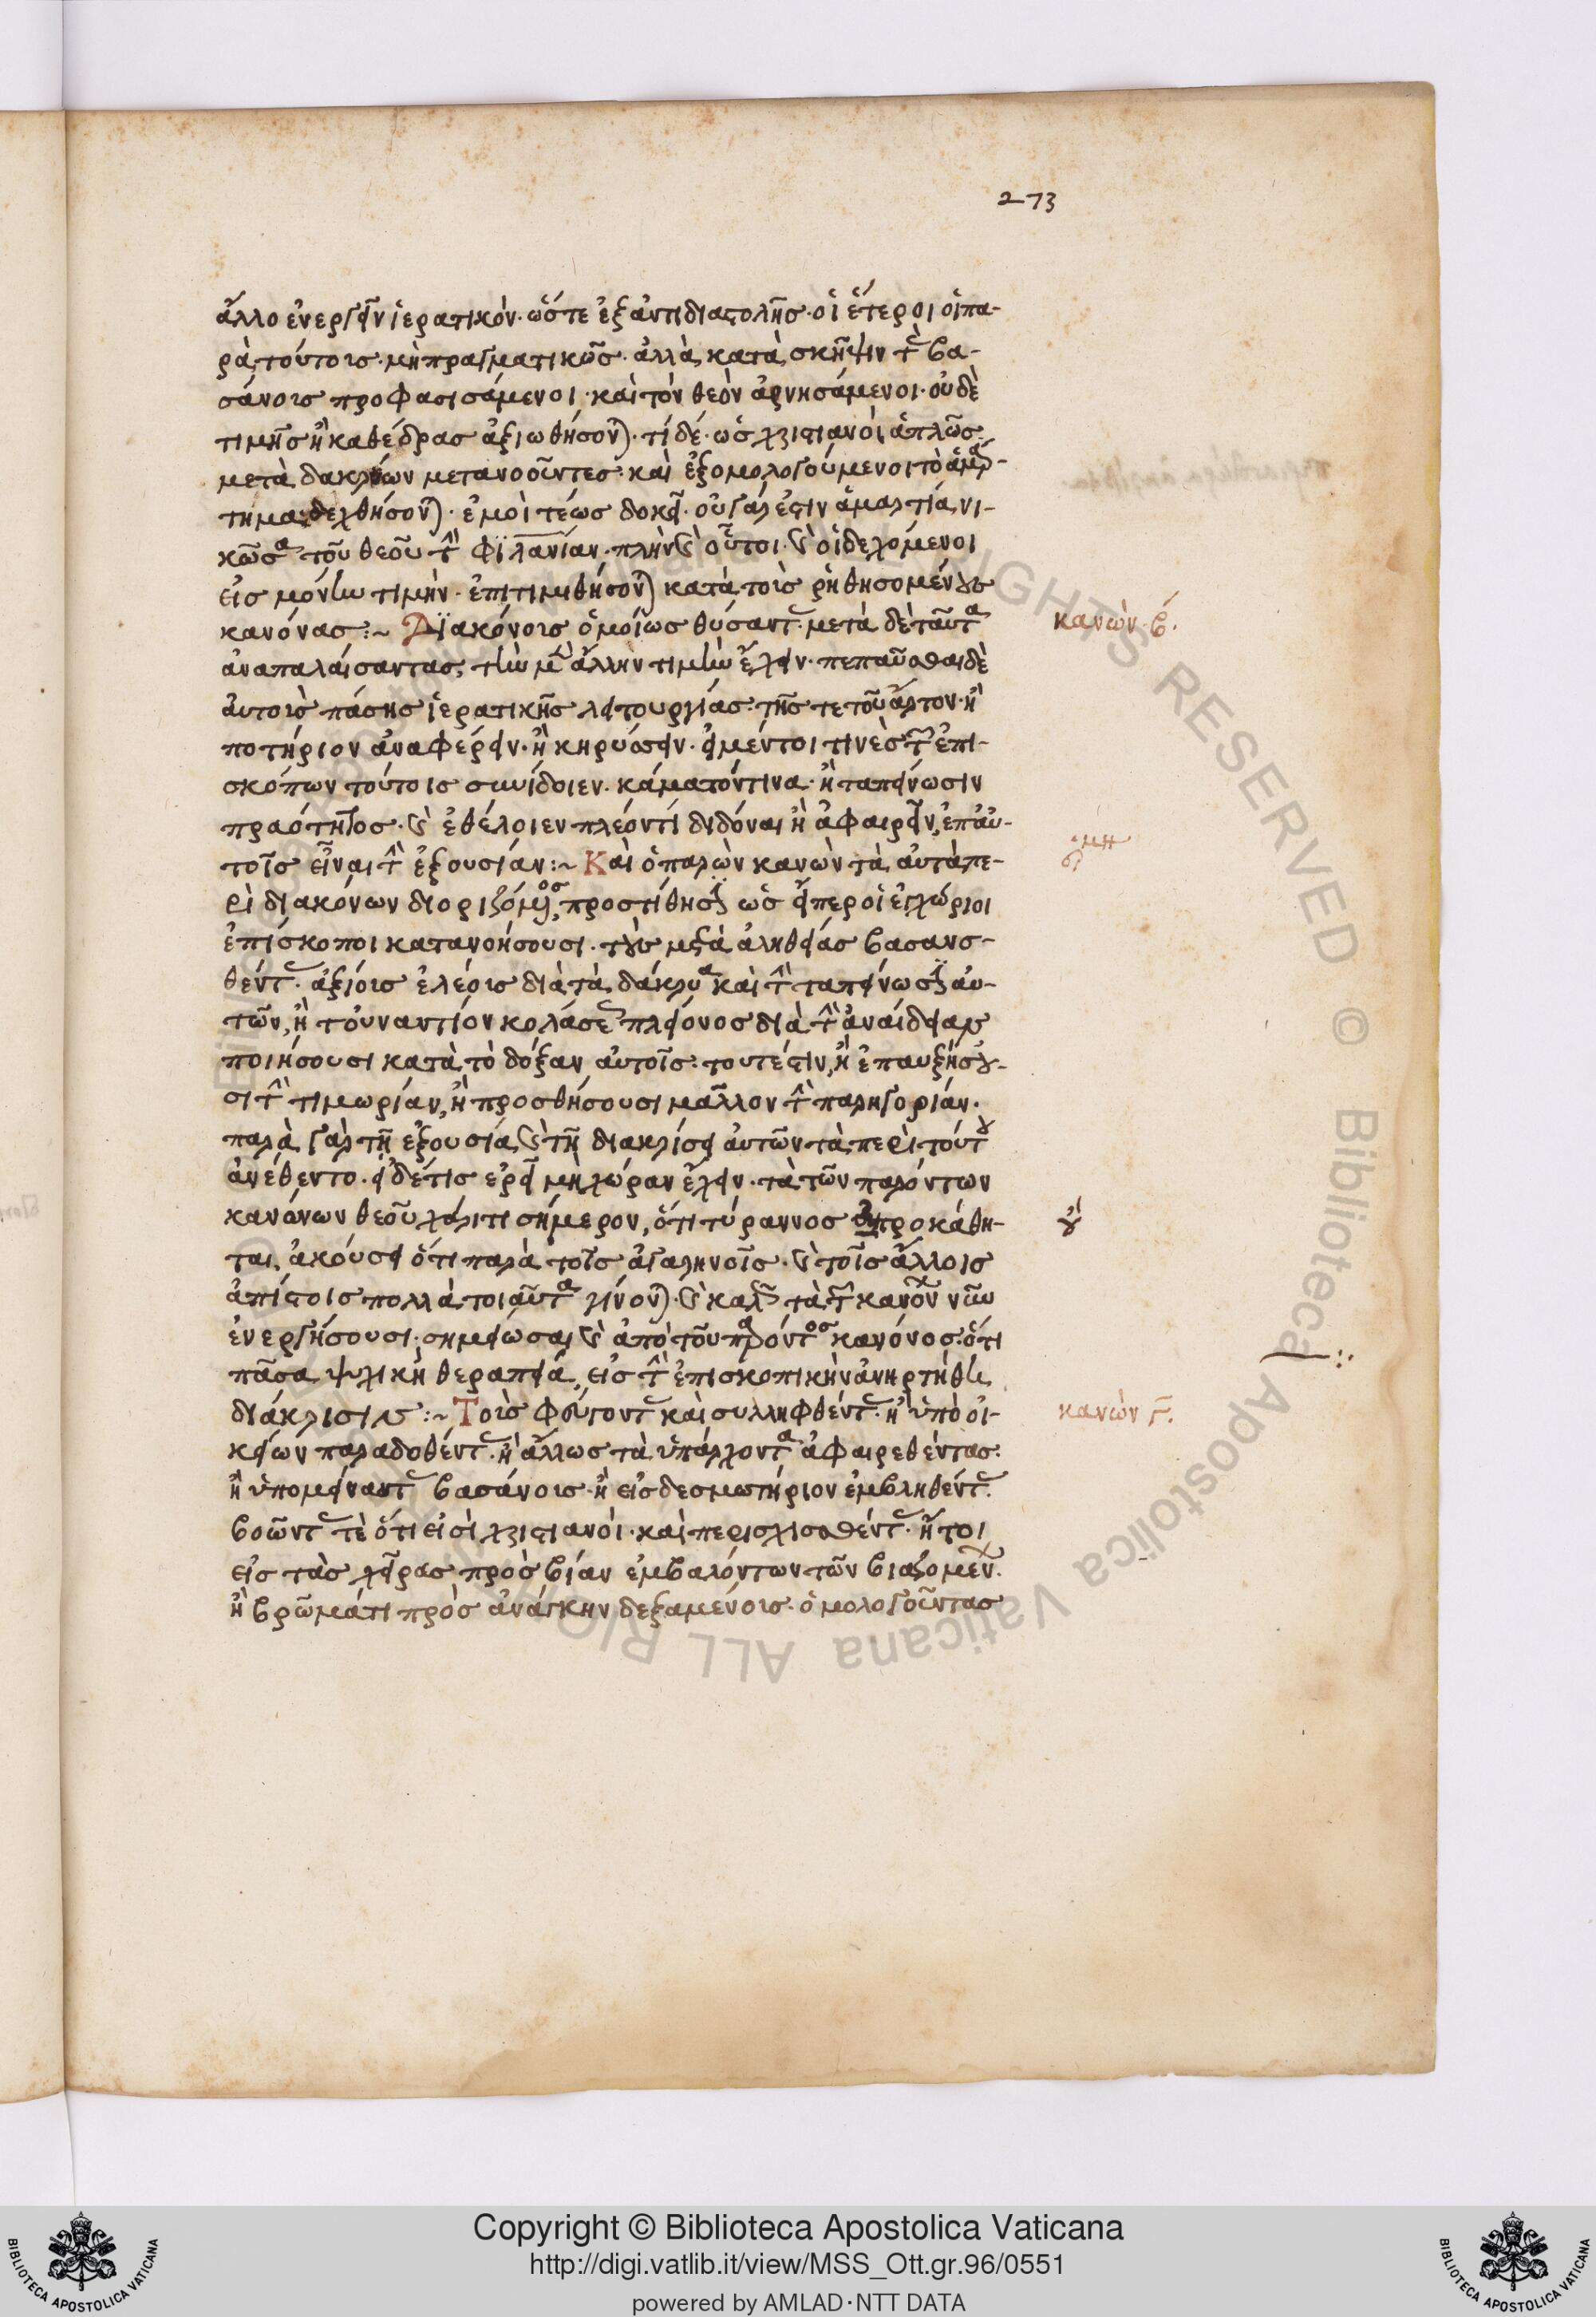 273
ἄλλο ἐνεργεῖν ἱερατικόν· ὥστε ἐξ ἀντιδιαστολῆς· οἱ ἕτεροι οἱ πα-
ρὰ τούτοις· μὴ πραγματικῶς· ἀλλὰ κατὰ σκῆψιν τὰς βα-
σάνους προφασισάμενοι· καὶ τὸν θεὸν ἀρνησάμενοι· οὐδὲ
τιμῆς ἢ καθέδρας ἀξιωθήσονται· τί δέ· ὡς χριστιανοὶ ἁπλῶς
μετὰ δακρύων μετανοοῦντες· καὶ ἐξομολογούμενοι τὸ ἁμάρ-
τημα δεχθήσονται· ἐμοὶ τέως δοκεῖ· οὐ γάρ ἐστιν ἁμαρτία νι-
κῶσα τοῦ θεοῦ τὴν φιλανίαν· πλὴν καὶ οὗτοι· καὶ οἱ δεχόμενοι
εἰς μόνην τιμὴν· ἐπιτιμηθήσονται κατὰ τοὺς ῥηθησομένους
κανόνας :~ Διακόνους ὁμοίως θύσαντας· μετὰ δὲ ταῦτα
κανὼν β.
ἀναπαλαίσαντας, τὴν μὲν ἄλλην τιμὴν ἔχειν· πεπαῦσθαι δὲ
αὐτοὺς πάσης ἱερατικῆς λειτουργίας· τῆς τε τοῦ ἄρτον· ἢ
ποτήριον ἀναφέρειν· ἢ κηρύσσειν· εἰ μέντοι τινὲς τῶν ἐπι-
σκόπων τούτοις συνίδοιεν· κάματόν τινα· ἢ ταπείνωσιν
πραότητος· καὶ ἐθέλοιεν πλέον τι διδόναι ἢ ἀφαιρεῖν, ἐπ' αὐ-
τοῖς εἶναι τὴν ἐξουσίαν :~ Καὶ ὁ παρὼν κανὼν τὰ αὐτὰ πε-
ρὶ διακόνων διοριζόμενος, προστίθησιν ὡς εἴπερ οἱ ἐγχώριοι
ἐπίσκοποι κατανοήσουσι· τοὺς μετὰ ἀληθείας βασανισ-
θέντας· ἀξίους ἐλέους διὰ τὰ δάκρυα καὶ τὴν ταπείνωσιν αὐ-
τῶν, ἢ τοὐναντίον κολάσεως πλείονος διὰ τὴν ἀναίδειαν
ποιήσουσι κατὰ τὸ δόξαν αὐτοῖς· τουτέστιν, ἢ ἐπαυξήσου-
σι τὴν τιμωρίαν, ἢ προσθήσουσι μᾶλλον τὴν παρηγορίαν·
παρὰ γὰρ τῇ ἐξουσία καὶ τῇ διακρίσει αὐτῶν τὰ περὶ τούτου
ἀνέθεντο· εἰ δέ τις ἐρεῖ μὴ χώραν ἔχειν· τὰ τῶν παρόντων
κανόνων θεοῦ χάριτι σήμερον, ὅτι τύραννος οὐ προκάθη-
ται, ἀκούσει ὅτι παρὰ τοῖς ἀγαρηνοῖς· καὶ τοῖς ἄλλοις
ἀπίστοις πολλὰ τοιαῦτα γίνονται· καὶ καλῶς τὰ τῶν κανόνων νῦν
ἐνεργήσουσι· σημείωσαι καὶ ἀπὸ τοῦ παρόντος κανόνος· ὅτι
πᾶσα ψυχικὴ θεραπεία, εἰς τὴν ἐπισκοπικὴν ἀνηρτήθη
διάκρισιν :~ Τοὺς φεύγοντας καὶ συλληφθέντας· ἢ ὑπὸ οἰ-
κανὼν γ.
κείων παραδοθέντας· ἢ ἄλλως τὰ ὑπάρχοντα ἀφαιρεθέντας·
ἢ ὑπομείναντας βασάνους· ἢ εἰς δεσμωτήριον ἐμβληθέντας·
βοῶντας τὲ ὅτι εἰσὶ χριστιανοί· καὶ περισχισθέντας· ἤτοι
εἰς τὰς χεῖρας πρὸς βίαν ἐμβαλόντων τῶν βιαζομένων·
ἢ βρῶμά τι πρὸς ἀνάγκην δεξαμένους· ὁμολογοῦντας
Copyright © Biblioteca Apostolica Vaticana
http://digi.vatlib.it/view/MSS_Ott.gr.96/0551
powered by AMLAD·NTT DATA